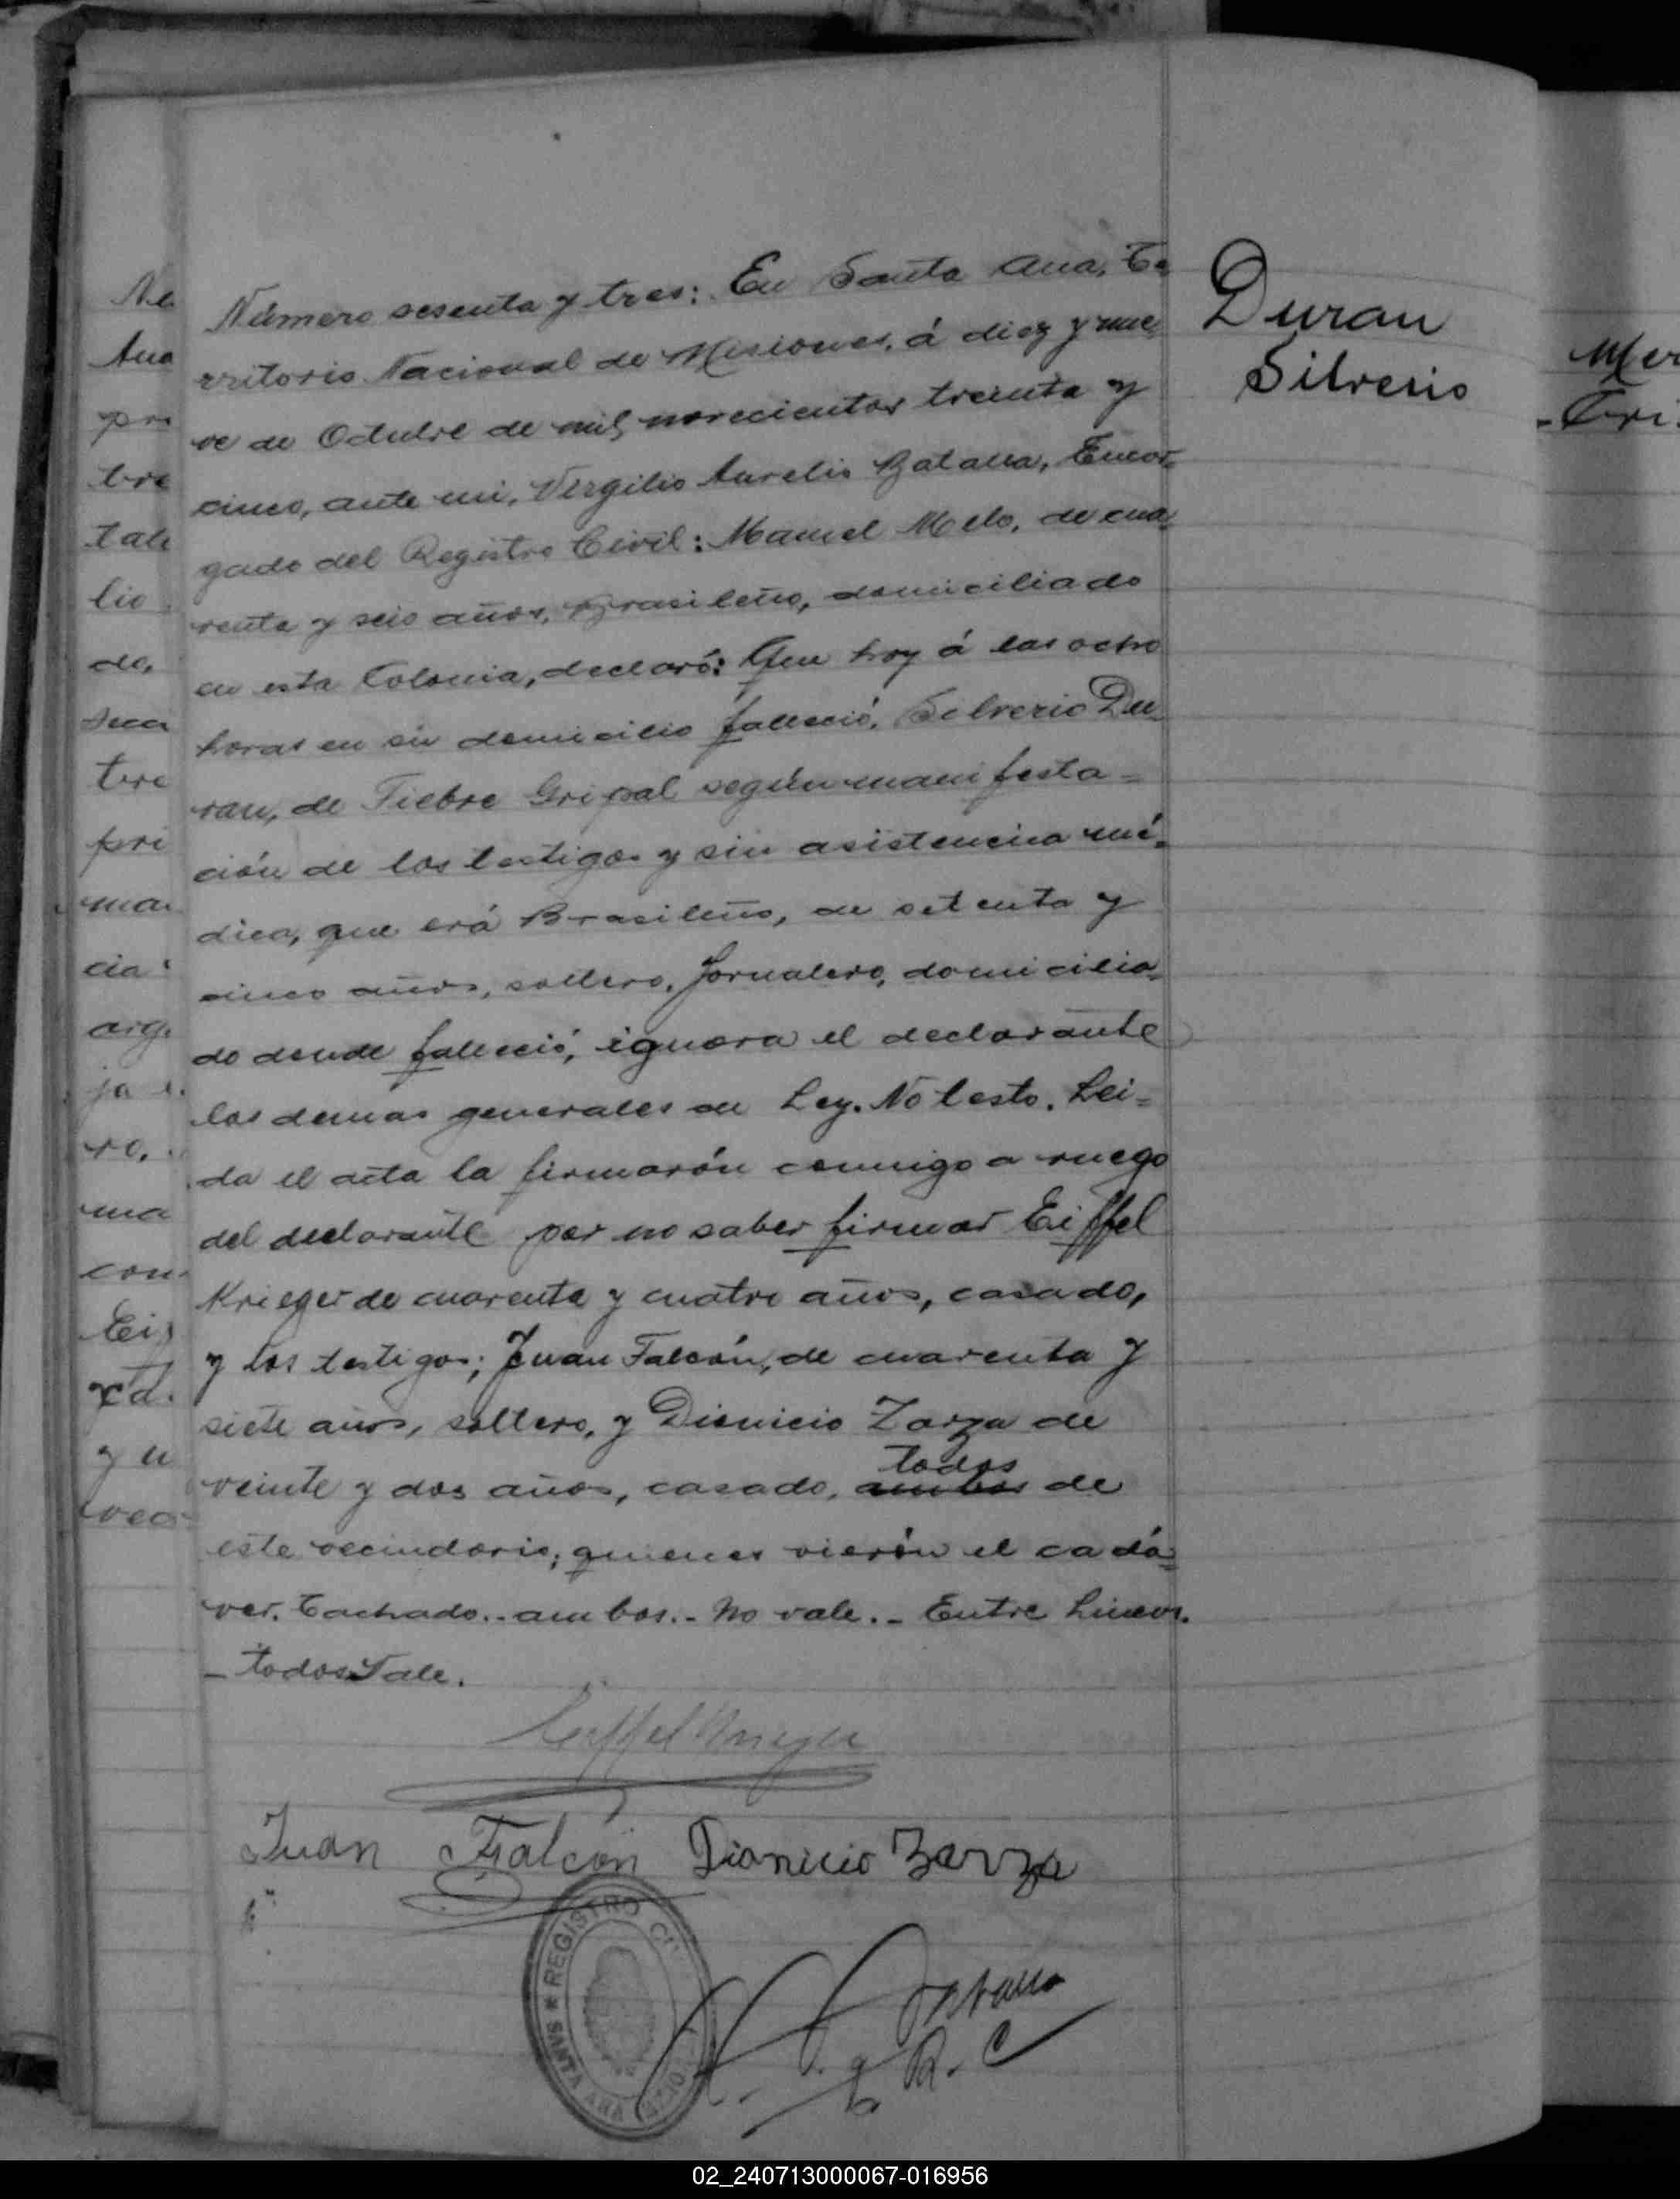 Número sesenta y tres: En Santa Ana, Te=
rritorio Nacional de Misiones, á diez y nue=
ve de Octubre de mil novecientos treinta y
cinco, ante mi, Vergilio Aurelio Batalla, Encar=
gado del Registro Civil: Manuel Melo, de cua=
renta y seis años, Brasileño, domiciliado
en esta Colonia, declaró: Que hoy á las ocho
horas en su domicilio falleció, Silverio Du=
ran, de Fiebre Gripal según manifesta=
ción de los testigos y sin asistencia mé=
dica, que erá Brasileño, de setenta y
cinco años, soltero, Jornalero, domicilia=
do donde falleció, ignora el declarante
las demas generales de Ley. No testo. Lei=
da el acta la firmarón conmigo a ruego
del declarante por no saber firmar Eiffel
Krieger de cuarenta y cuatro años, casado,
y los testigos; Juan Falcón, de cuarenta y
siete años, soltero, y Dionicio Zarza de
todos
veinte y dos años, casado, ambos de
este vecindario; quienes vierón el cadá=
ver. Tachado.-ambos.-No vale.-Entre Lineas.
-todos Vale.
Eiffel Krieger
Juan Falcón Dionicio Zarza
REGISTRO
SANTA ANA
R. C
Duran
Silverio
Ne
Ana
pro
tre
tall
lio
do,
seca
tere
pri
mai
cia
arg.
ja
ro,
ma
con
Ei
y u
Mer
02_240713000067-016956